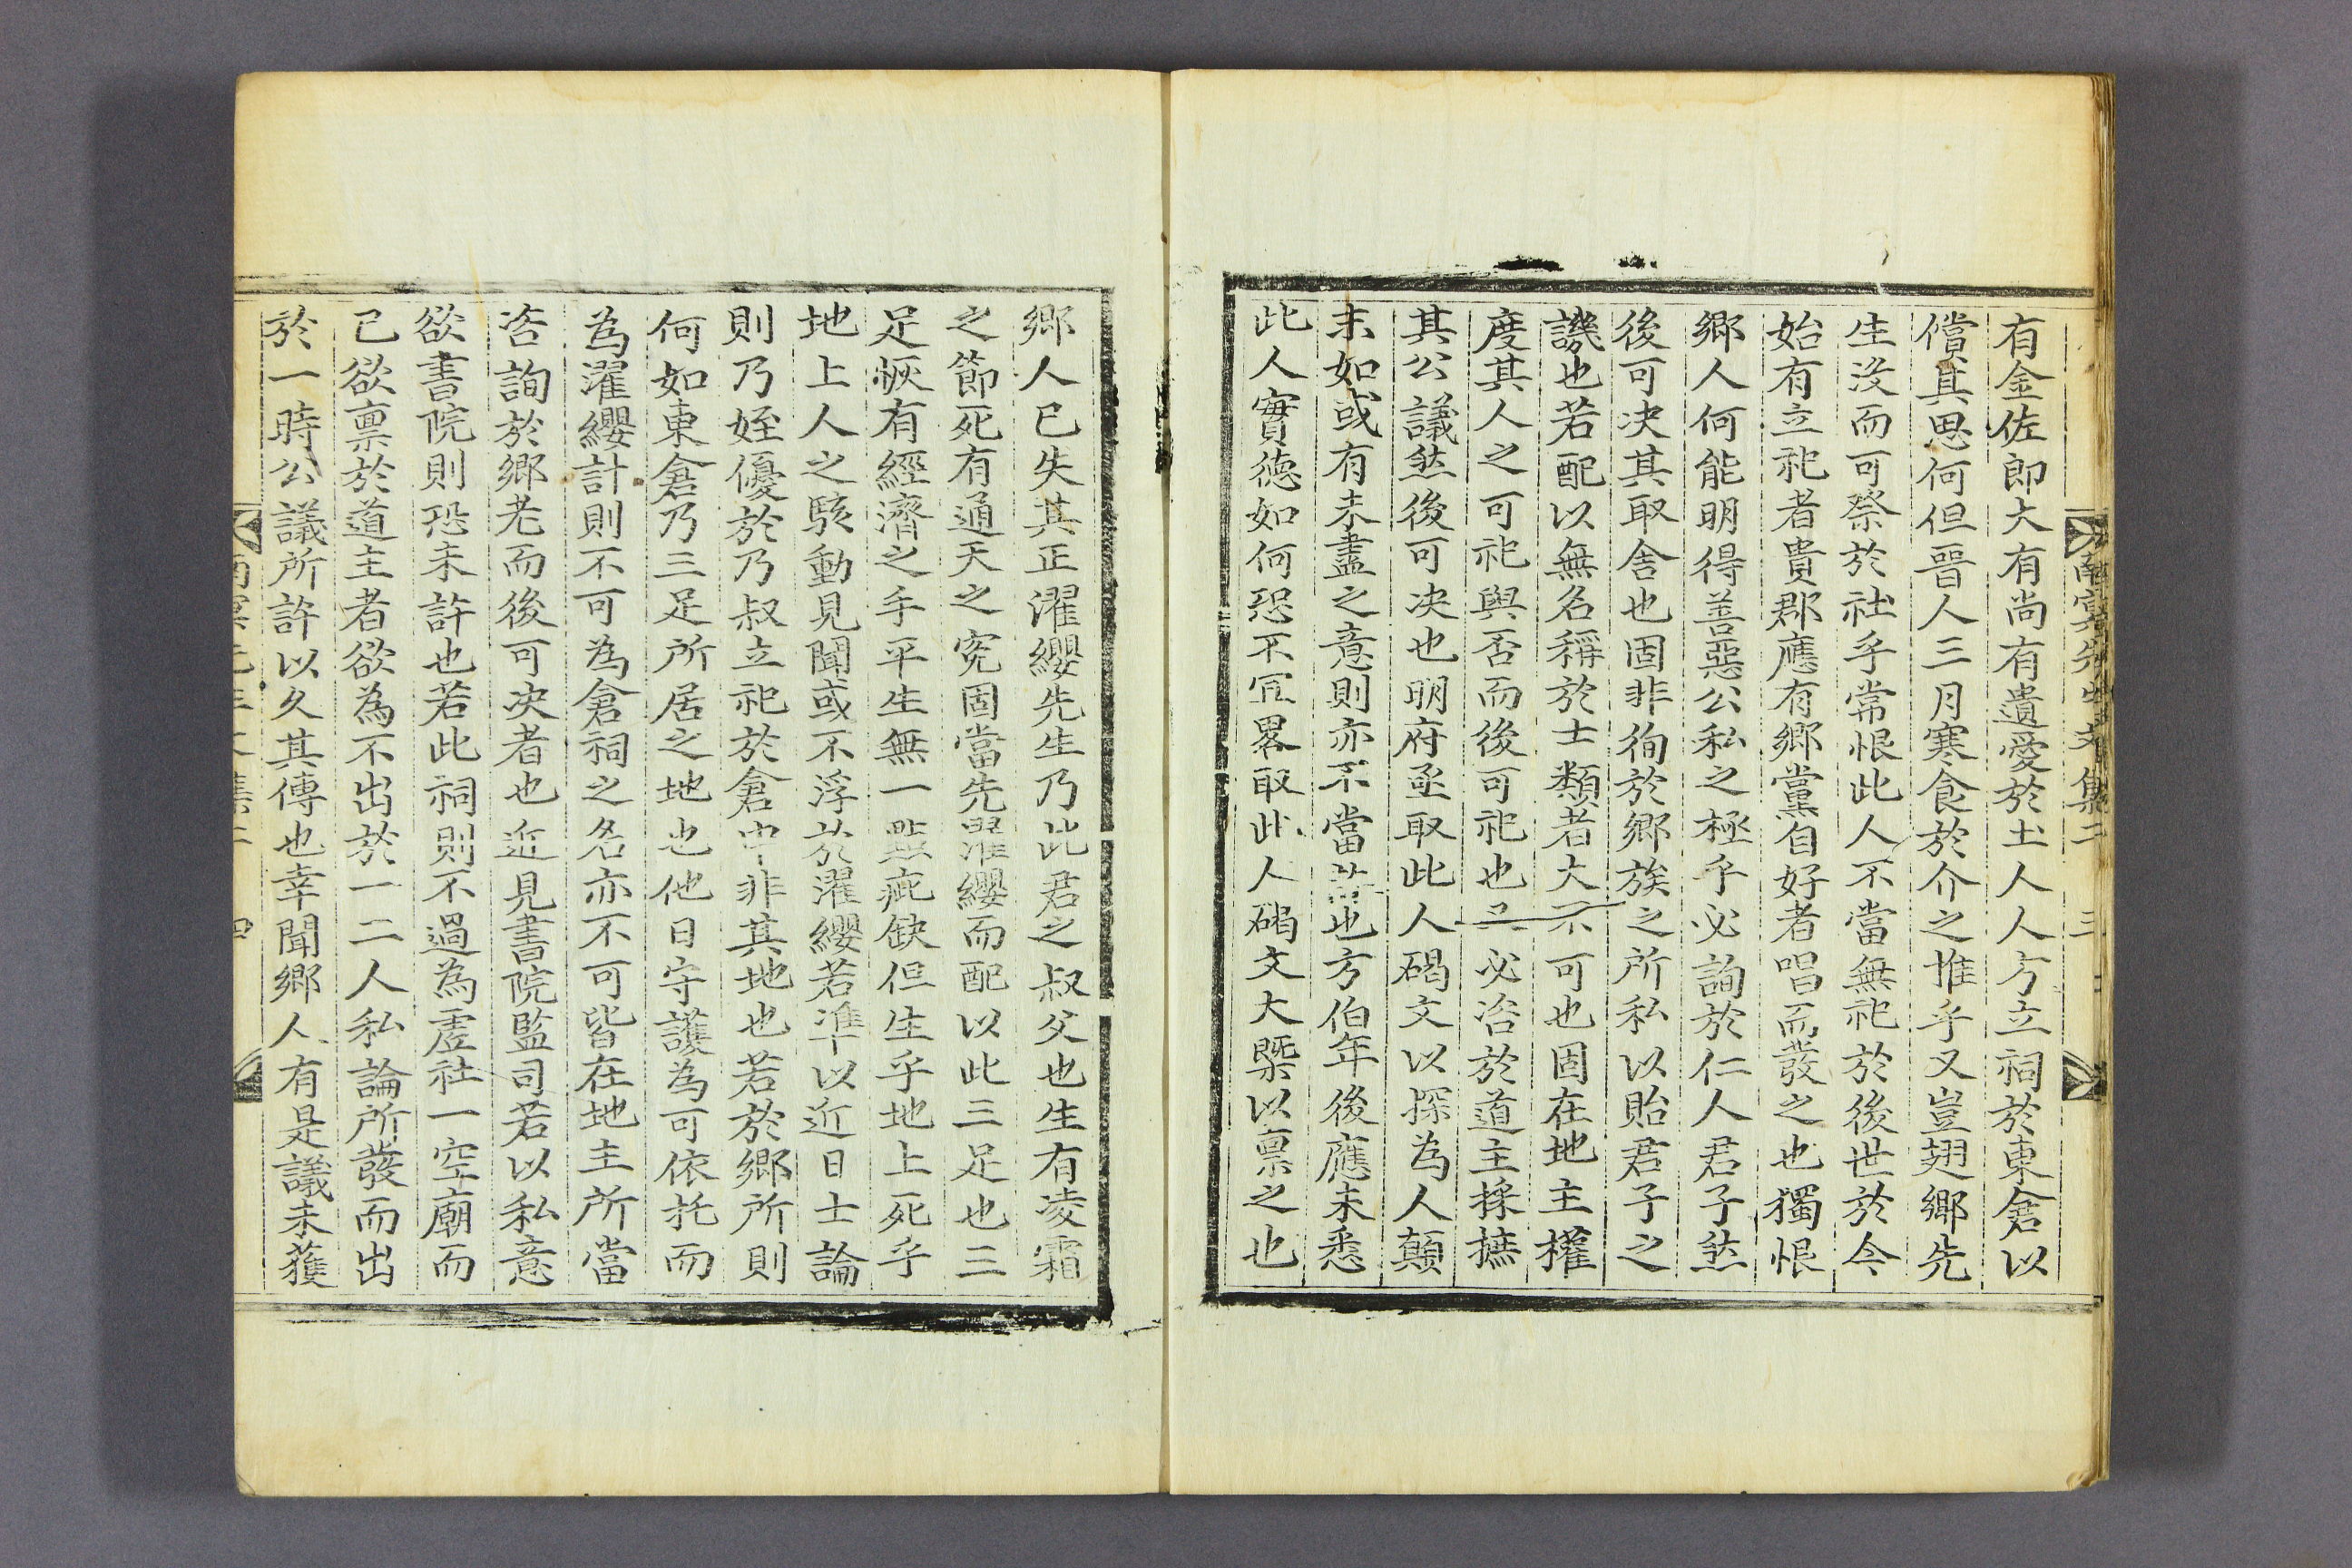 南冥先生文集二 三
有金佐郎大有尚有遺愛於土人人方立祠於東倉以
償其思何但晉人三月寒食於介之推乎又豈翅鄉先
生沒而可祭於社乎常恨此人不當無祀於後世於今
始有立祀者貴郡應有鄉黨自好者唱而發之也獨恨
鄉人何能明得善惡公私之極乎必詢於仁人君子然
後可决其取舍也固非徇於鄉族之所私以貽君子之
譏也若配以無名稱於士類者大不可也固在地主權
度其人之可祀與否而後可祀也又必咨於道主採摭
其公議然後可决也明府亟取此人碣文以探為人顛
末如或有未盡之意則亦不當 也方伯年後應未悉
此人實德如何恐不冝畧取此人碣文大槩以禀之也
鄉人已失其正濯纓先生乃此君之叔父也生有凌霜
之節死有通天之寃固當先濯纓而配以此三足也三
足恢有經濟之手平生無一點疵缺但生乎地上死乎
地上人之駭動見聞或不浮於濯纓若準以近日士論
則乃姪優於乃叔立祀於倉中非其地也若於鄉所則
何如東倉乃三足所居之地也他日守護為可依托而
為濯纓計則不可為倉祠之名亦不可皆在地主所當
咨詢於鄉老而後可决者也近見書院監司若以私意
欲書院則恐未許也若此祠則不過為虛社一空廟而
已欲禀於道主者欲為不出於一二人私論所發而出
於一時公議所許以久其傳也幸聞鄉人有是議未獲
南冥先生文集二 四